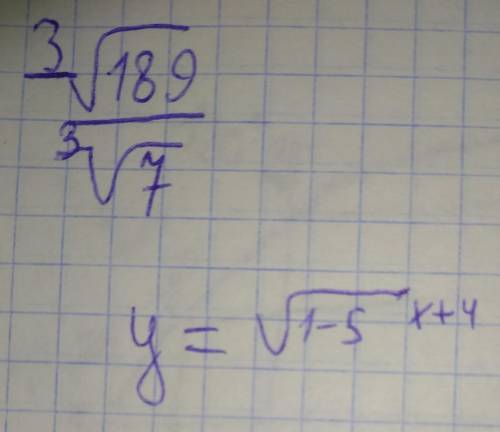 ³√189
³√7
y = √1-5 ˣ⁺⁴